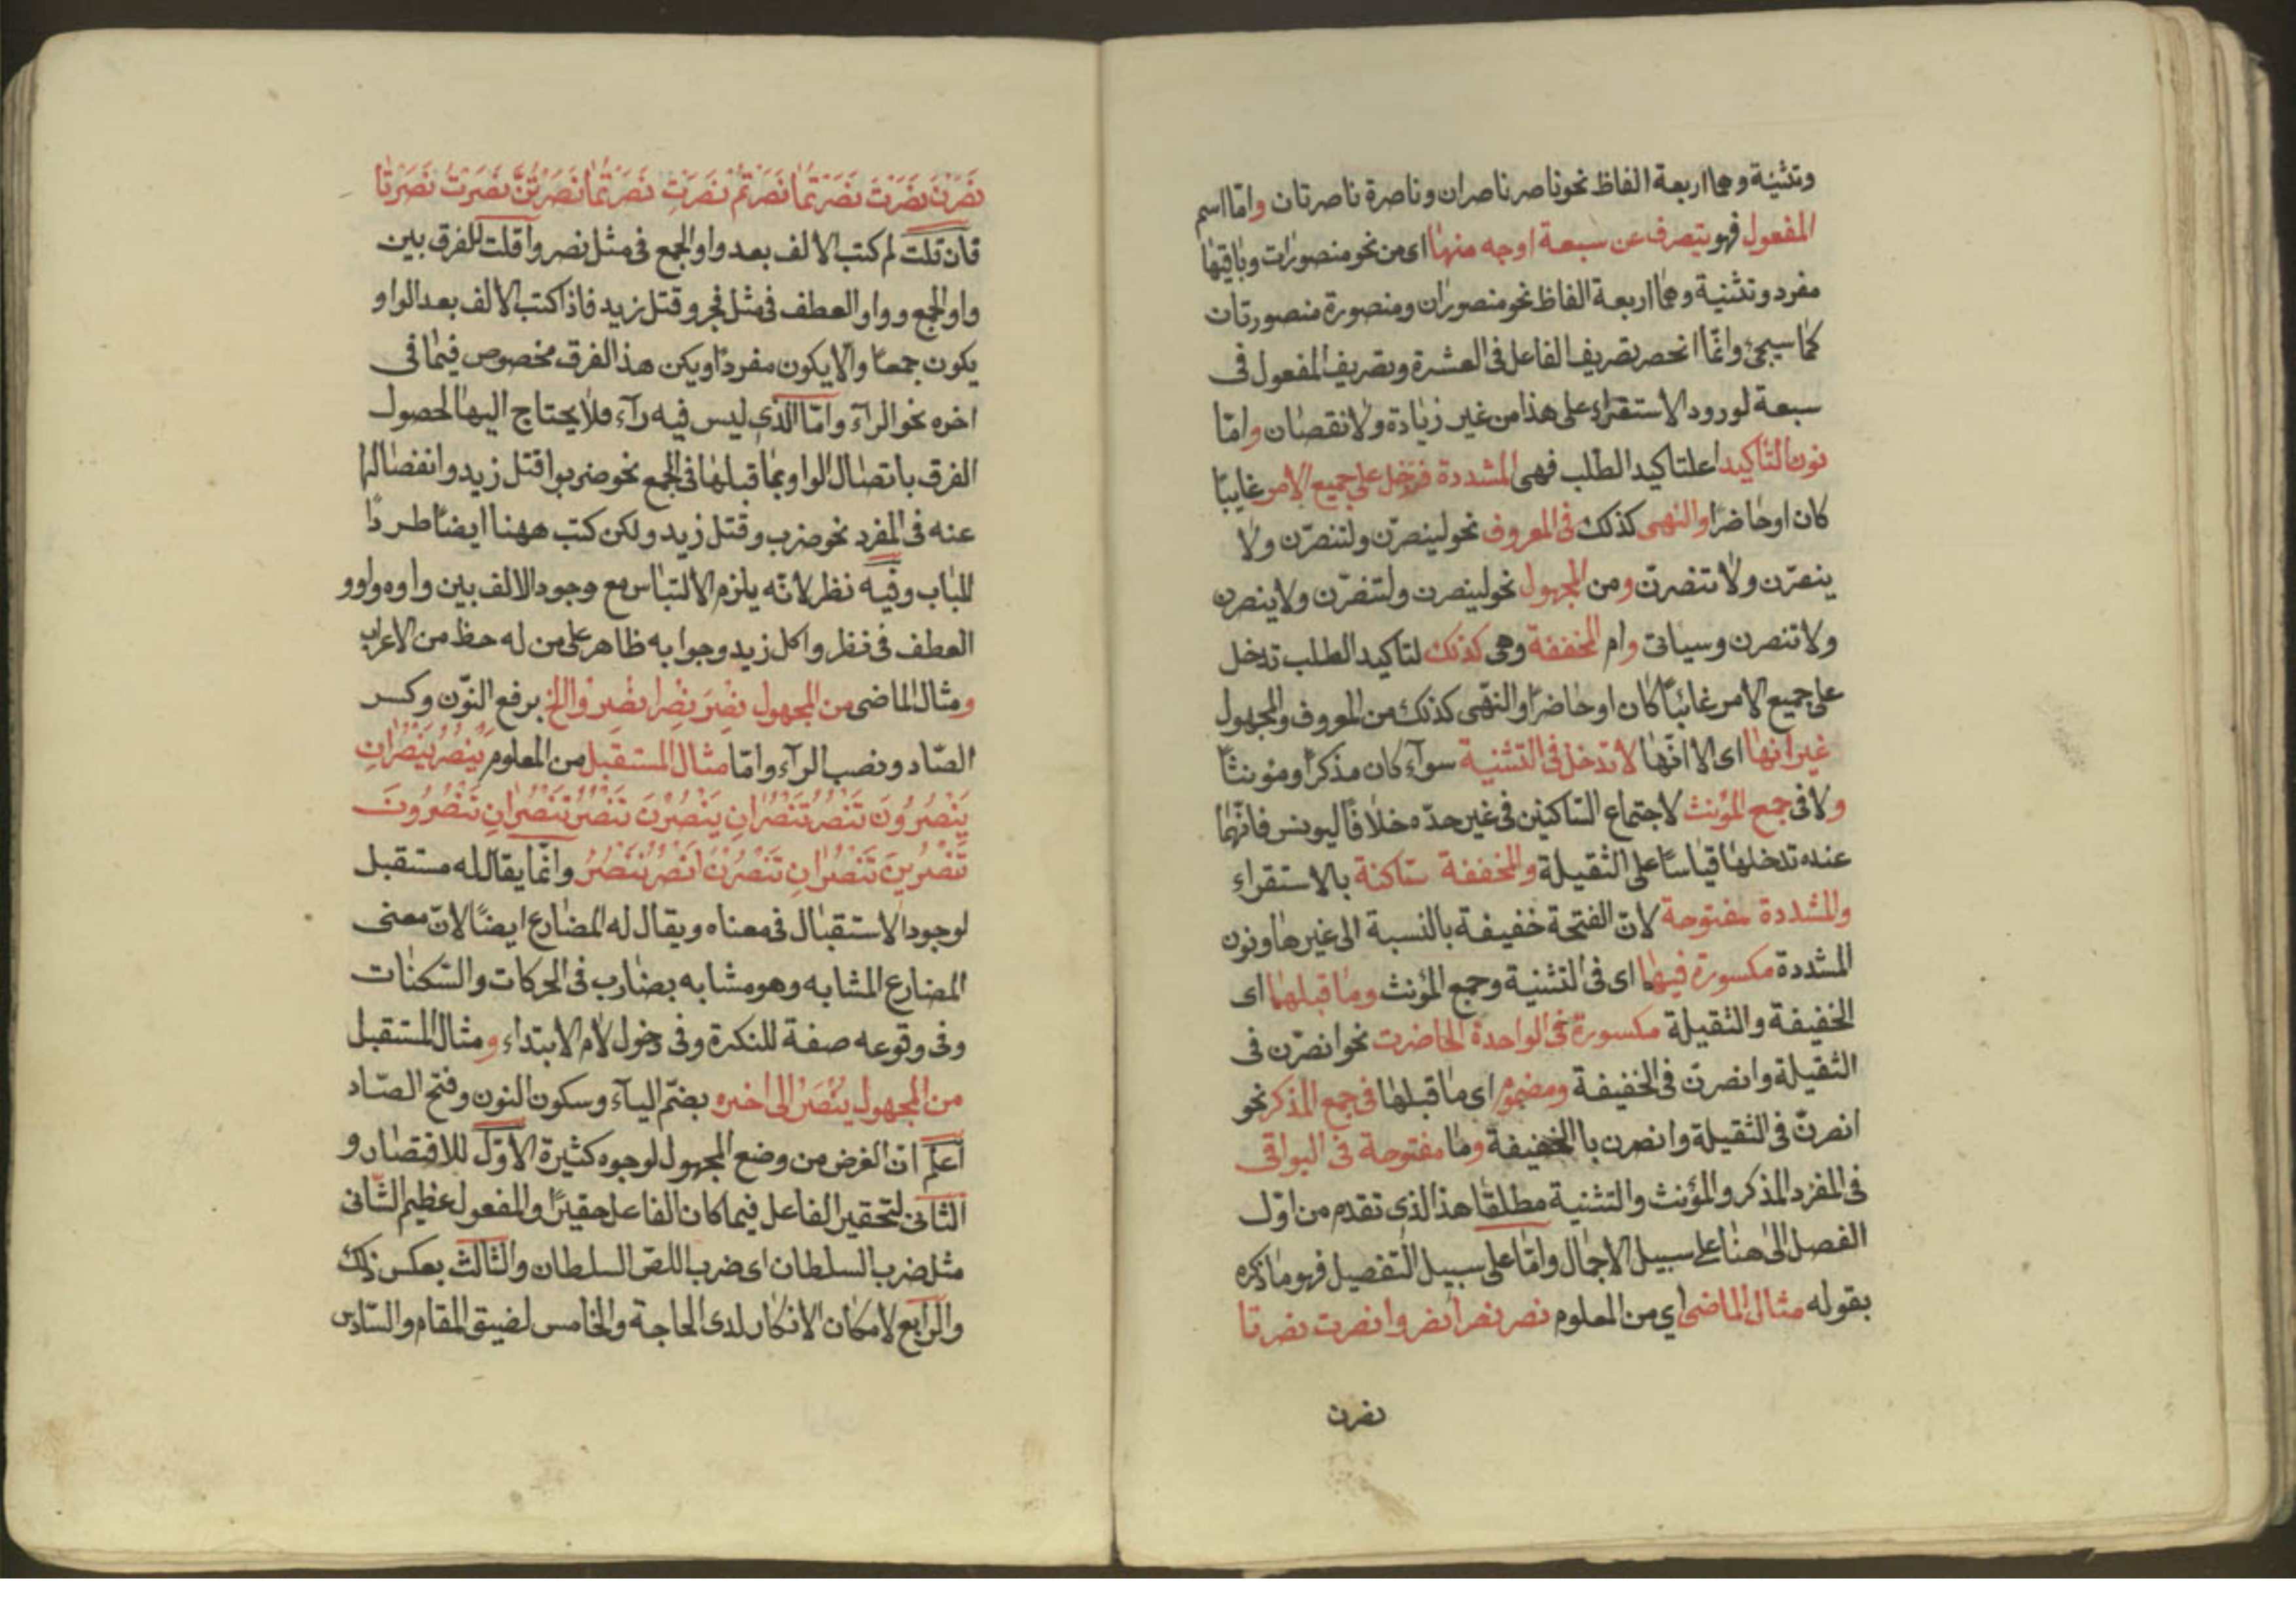 وتثنية وهما اربعة الفاظ نحو ناصر ناصران وناصرة ناصرتان واما اسم
المفعول فهو يتصرف عن سبعة اوجه منها اى من نحو منصورات وباقيها
مفرد وتثنية وهما اربعة الفاظ نحو منصوران ومنصورة منصورتان
كما سيجئ وانما انحصر تصريف الفاعل فى العشرة وتصريف المفعول فى
سبعة لورود الاستقراء على هذا من غير زيادة ولا نقصان واما
نون التأكيد اعلتاكيد الطلب فهى المشددة فتدخل على جميع الامر غايبا
كان او حاضرا والنهى كذلك فى المعروف نحو لينصرن ولتنصرن ولا
ينصرن ولا تنصرن ومن المجهول نحو لينصرن ولتنصرن ولا ينصرن
ولا تنصرن وسياتى وام المخففة وهى كذلك لتاكيد الطلب تدخل
على جميع الامر غائبا كان او حاضرا والنهى كذلك من المعروف والمجهول
غير انها اى الا انها لا تدخل فى التثنية سوآء كان مذكرا ومؤنثا
ولا فى جمع المؤنث لاجتماع الساكنين فى غير حده خلافا ليونس فانهما
عنده تدخلها قياسا على الثقيلة والمخففة ساكنة بالاستقراء
والمشددة مفتوحة لان الفتحة خفيفة بالنسبة الى غيرها ونون
المشددة مكسورة فيهما اى فى التثنية وجمع المؤنث وما قبلهما اى
الخفيفة والثقيلة مكسورة فى الواحدة الحاضرت نحو انصرن فى
الثقيلة وانصرن فى الخفيفة ومضموم اى ما قبلها فى جمع المذكر نحو
انصرن فى الثقيلة وانصرن با الخفيفة وما مفتوحة فى البواقى
فى المفرد المذكر والمؤنث والتثنية مطلقا هذا الذى تقدم من اول
الفصل الى هنا على سبيل الاجمال واما على سبيل التفصيل فهو ما ذكره
بقوله مثال الماضى اي من المعلوم نصر نصرا نصروا نصرت نصرتا
نصرن
نَصَرْنَ نَصَرْتَ نَصَرْتُمَا نَصَرْتُمْ نَصَرْتِ نَصَرْتُمَا نَصَرْتُنَّ نَصَرْتُ نَصَرْنَا
فان قلت لم كتب الالف بعد واو الجمع فى مثل نصروا قلت للفرق بين
واو الجمع وواو العطف فى مثل فجر وقتل زيد فاذا كتب الالف بعد الواو
يكون جمعا والا يكون مفردا ويكن هذ الفرق مخصوص فيما فى
اخره نحو الرآء واما الذى ليس فيه رآء فلا يحتاج اليها لحصول
الفرق باتصال الواو بما قبلها فى الجمع نحو ضربوا قتل زيد وانفصالها
عنه فى المفرد نحو ضرب وقتل زيد ولكن كتب ههنا ايضا طردا
للباب وفيه نظر لانه يلزم الالتباس مع وجود الالف بين واوه وواو
العطف فى نظر واكل زيد وجوابه ظاهر على من له حظ من الاعراب
ومثال الماضى من المجهول نصر نصرا نصروا الخ برفع النون وكسر
الصاد ونصب الرآء واما مثال المستقبل من المعلوم يَنْصُرُ يَنْصُرَانِ
يَنْصُرُونَ تَنْصُرُ تَنْصُرَانِ يَنْصُرْنَ تَنْصُرُ تَنْصُرَانِ تَنْصُرُونَ
تَنْصُرِينَ تَنْصُرَانِ تَنْصُرْنَ اَنْصُرُ نَنْصُرُ وانما يقال له مستقبل
لوجود الاستقبال فى معناه ويقال له المضارع ايضا لان معنى
المضارع المشابه وهو مشابه بضارب فى الحركات والسكنات
وفى وقوعه صفة للنكرة وفى دخول لام الابتداء ومثال المستقبل
من المجهول ينصر الى اخره بضم اليآء وسكون النون وفتح الصاد
اعلم ان الغرض من وضع المجهول لوجوه كثيرة الاول للاقتصار و
الثانى لتحقير الفاعل فيما كان الفاعل حقيرا والمفعول عظيم الشانى
مثل ضرب السلطان اى ضرب اللص السلطان والثالث بعكس ذلك
والرابع لامكان الانكار لدى الحاجة والخامس لضيق المقام والسادس